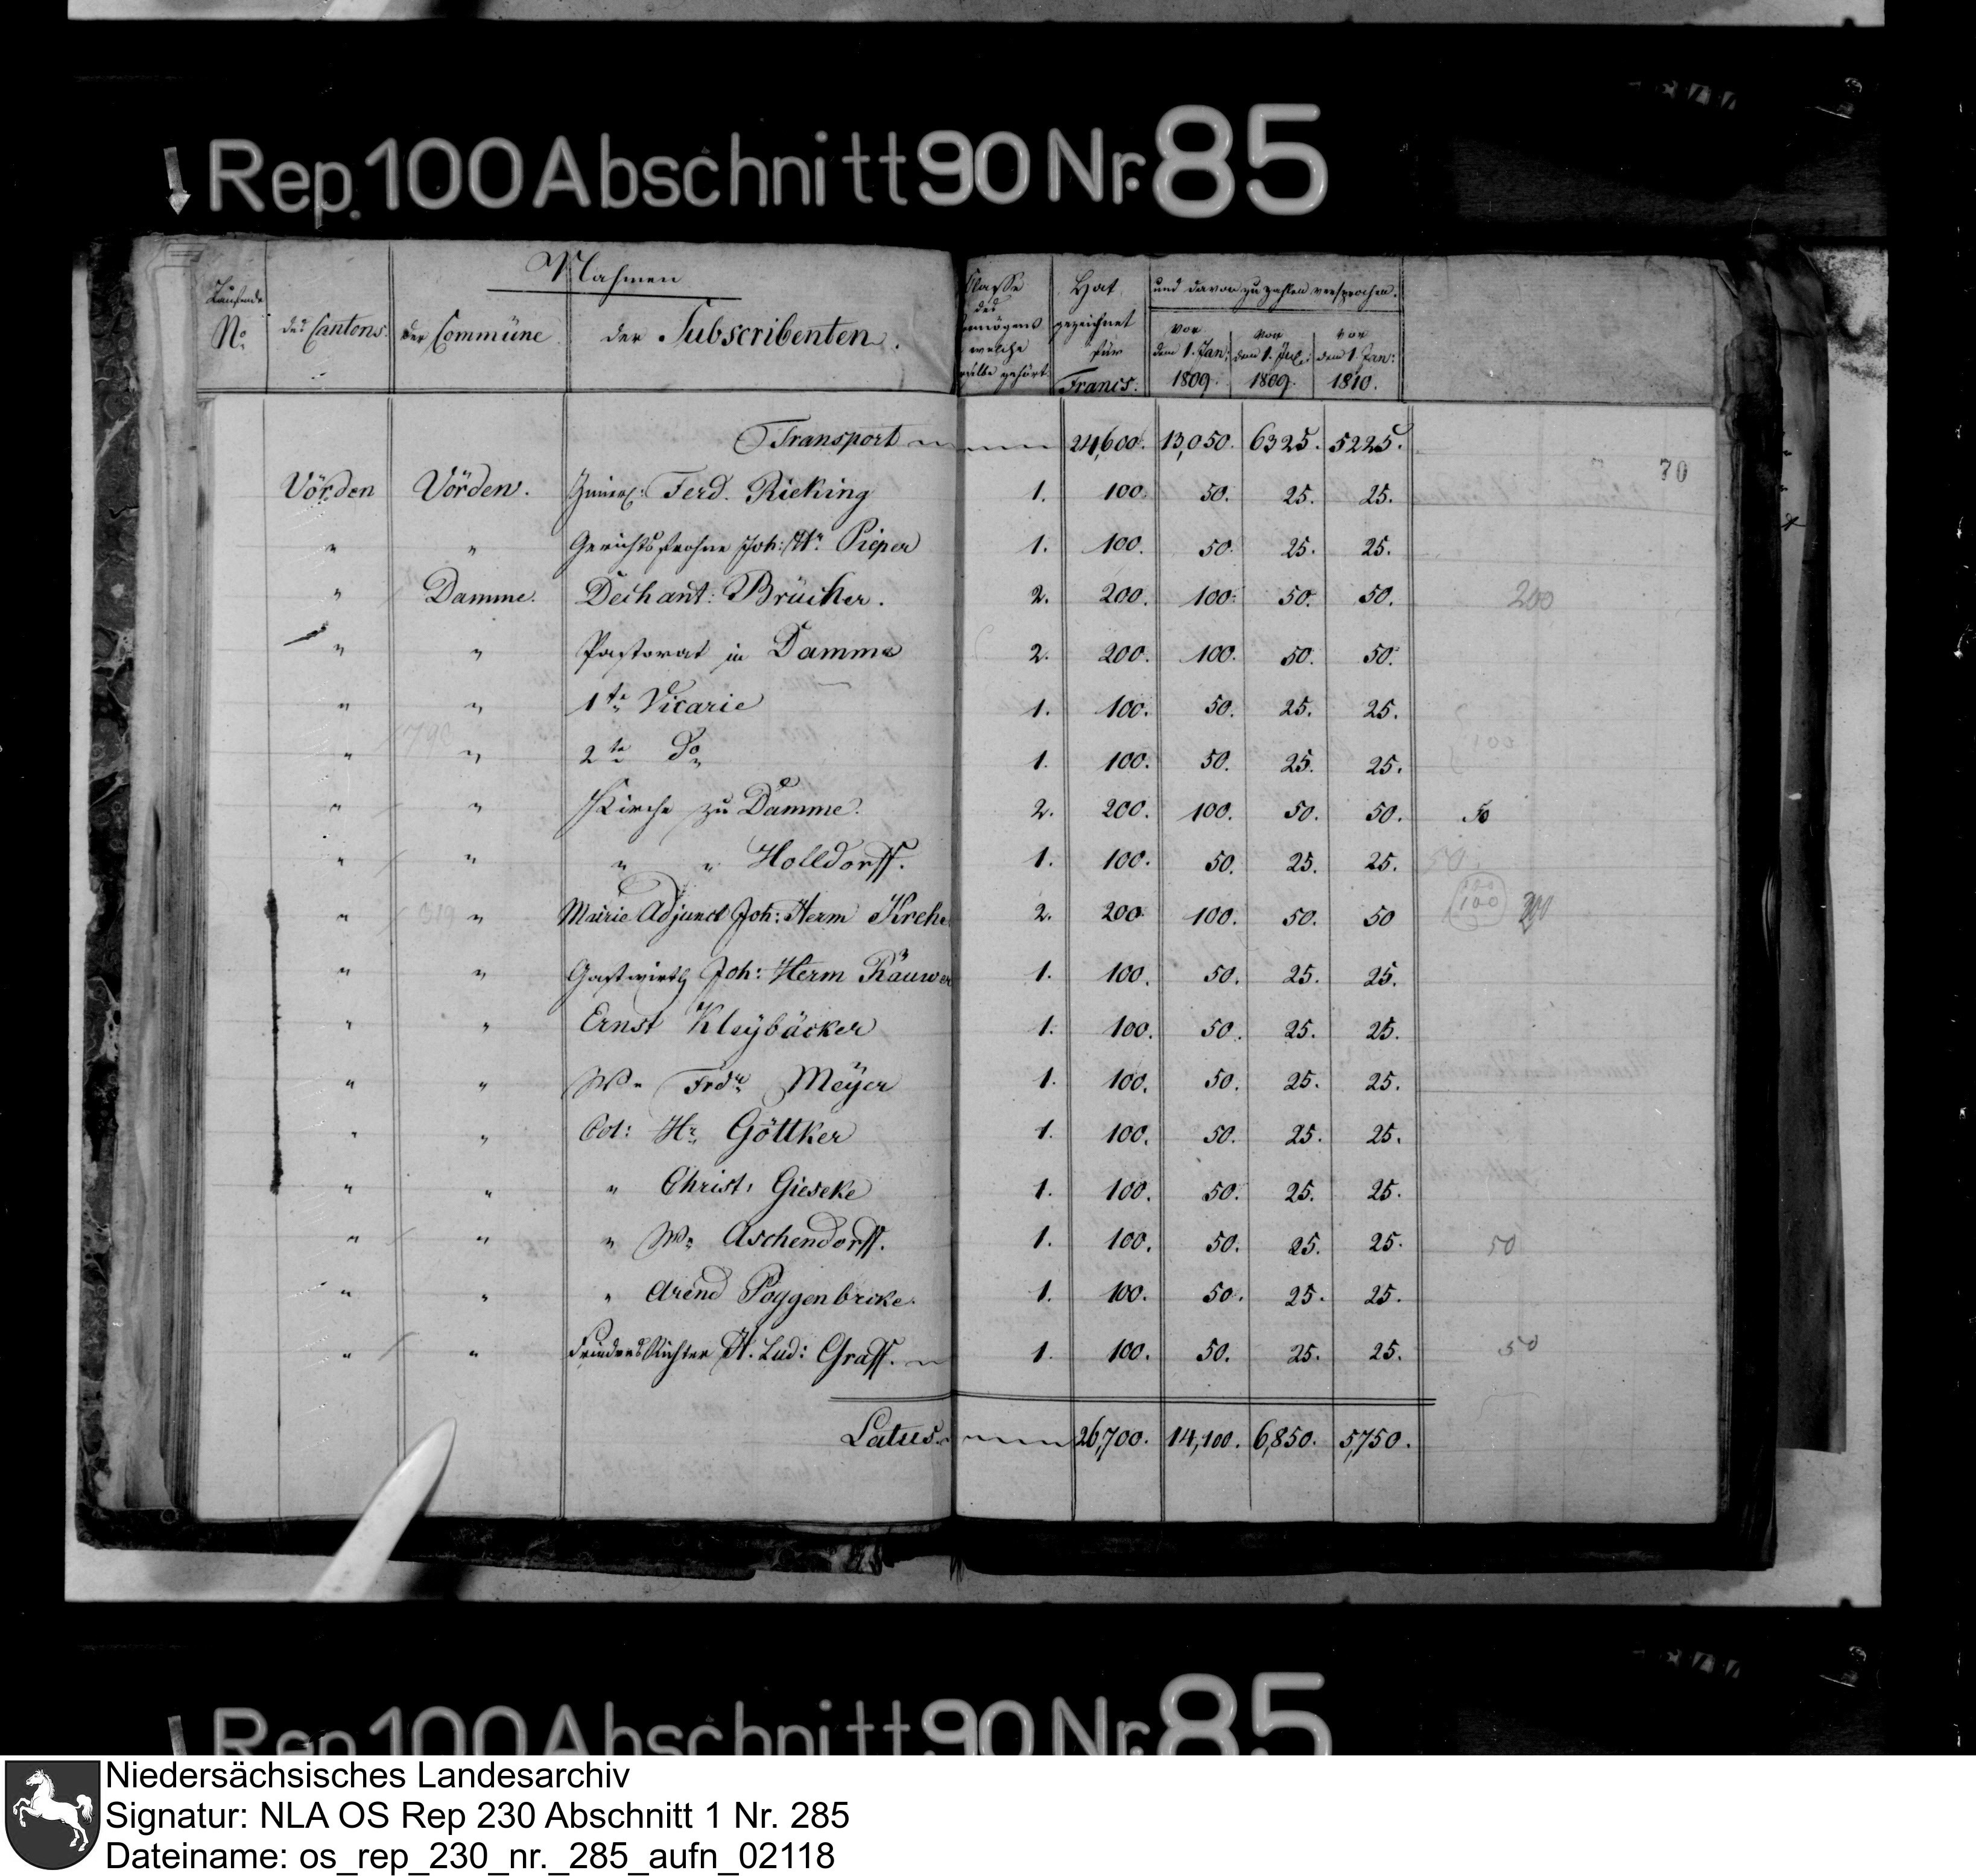 Rep. 100 Abschnitt 90 Nr. 85
Nahmen
Laufende No
des Cantons.
der Commüne
der Subscribenten.
Classe des Vermögens welche derselbe gehört
Hat gezeichnet für Francs.
und davon zu zahlen versprochen.
vor dem 1. Jan: 1809.
vor dem 1. Jul: 1809.
vor dem 1. Jan: 1810.
Transport 24,600. 13,050. 6325. 5225.
70
Vörden Vörden. Ferd. Rieking 1. 100. 50. 25. 25.
" " Gerichtsfrohne Joh: Hr. Pieper 1. 100. 50. 25. 25.
" Damme. Dechant: Brücher. 2. 200. 100. 50. 50. 200
" " Pastorat in Damme 2. 200. 100. 50. 50.
" " 1te Vicarie 1. 100. 50. 25. 25.
" " 2te Do 1. 100. 50. 25. 25. 100
" " Kirche zu Damme. 2. 200. 100. 50. 50. 50
" " " " Holldorff. 1. 100. 50. 25. 25. 50
" 319 " Mairie Adjunct Joh: Herm Krehe 2. 200. 100. 50. 50 100 100 200
" " Gastwirth Joh: Herm Räuwer 1. 100. 50. 25. 25.
" " Ernst Kleybäcker 1. 100. 50. 25. 25.
" " Ww Frdr Meÿer 1. 100. 50. 25. 25.
" " Col: Hr. Göttker 1. 100. 50. 25. 25.
" " " Christ: Gieseke 1. 100. 50. 25. 25.
" " " Ww Aschendorff. 1. 100. 50. 25. 25. 50
" " " Arend Poggenbreke. 1. 100. 50. 25. 25.
" " Friedens Richter H. Lud: Graff. 1. 100. 50. 25. 25. 50
Latus. 26,700. 14,100. 6,850. 5,750.
Rep. 100 Abschnitt 90 Nr. 85
Niedersächsisches Landesarchiv
Signatur: NLA OS Rep 230 Abschnitt 1 Nr. 285
Dateiname: os_rep_230_nr._285_aufn_02118